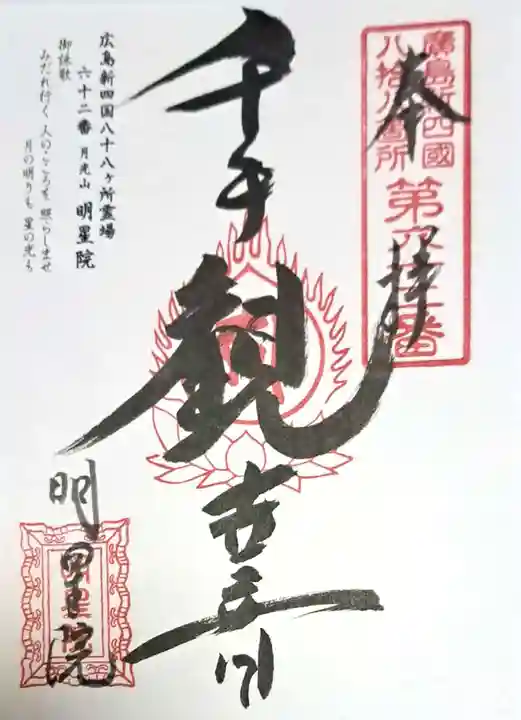 廣島新四國
八拾八箇所
第六十二番
奉拝
千手観世音
明星院
明星院
広島新四国八十八ヶ所霊場
六十二番 月光山 明星院
御詠歌
みだれ行く 人のこころを 照らしませ
月の明りも 星の光も